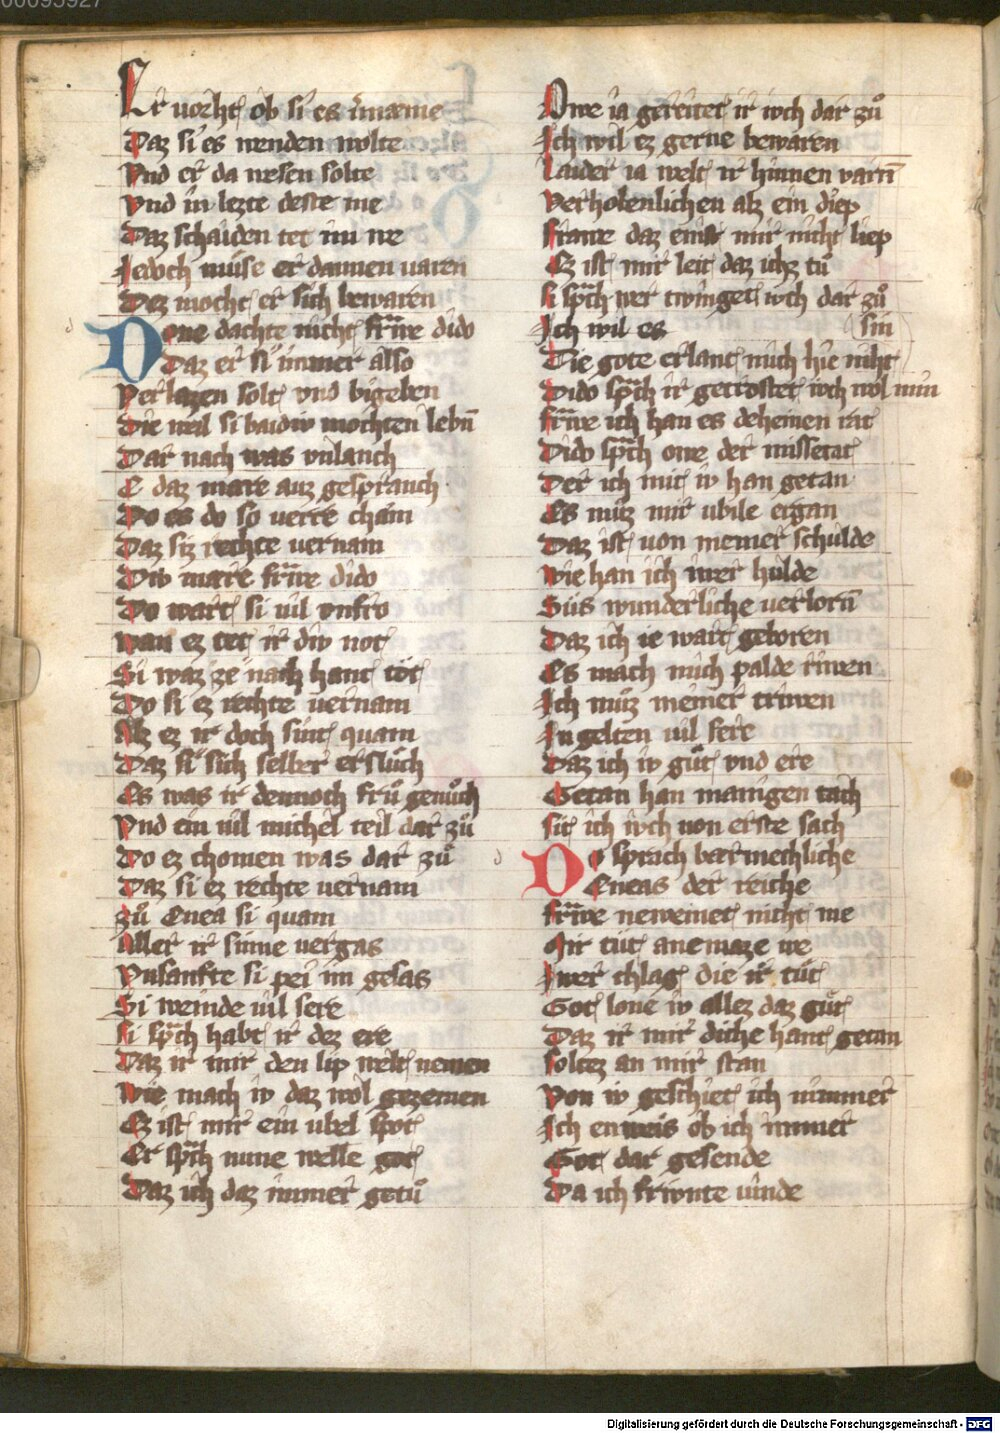 00095927
Er vorht ob si es v̾næme
Daz si es wenden wolte
Vnd er da wesen solte
Vnd in lezte deste me
Daz schaiden tet im we
Jedoch muͤse er dannen uaren
Dez mocht er sich bewaren
Done dachte nicht frawe dido
Daz er si immer also
Verlazen solt vnd bigeben
Die weil si baidiv mochten lebn̄
Dar nach was vnlanch
E daz mare auz gesprauch
Do es do so uerre cham
Daz siz rechte uernam
Div mare frawe dido
Do wart si uil vnfro
wan ez tet ir div not
Si waz ze nach hant tot
Do si ez rechte uernam
Alz ez ir doch sint quam
Daz si sich selber ersluͦch
Es was ir dennoch fruͦ genuͦch
Vnd ein uil michel teil dar zuͦ
Do ez chomen was dar zuͦ
Daz si ez rechte uernam
zuͦ Enea si quam
Aller ir sinne uergas
Vnsanfte si pei im gesas
Si weinde uil sere
si sp̄ch habt ir dez ere
Daz ir mir den lip welt nemen
wie mach iv daz wol gezemen
Ez ist mir ein ubel spot
Er sp̄ch nune welle got
Daz ich daz immer getuͦ
Owe ia gereitet ir iwch dar zuͦ
Ich wil ez gerne bewaren
Laider ia welt ir hinnen varn̄
Verholenlichen alz ein diep
frawe daz enist mir nicht liep
Ez ist mir leit daz ichz tuͦ
si sp̄ch wer twinget iwch dar zuͦ
Ich wil es sin
Die gote erlant mich hie niht
Dido sp̄ch ir getrostet iwch wol min
frawe ich han es deheinen rat
Dido sp̄ch owe der missetat
Der ich mit iv han getan
Es muͦz mir ubile ergan
Daz ist von meiner schulde
wie han ich iwer hulde
Sus wunderliche uerlorn̄
Daz ich ie wart geboren
Es mach mich palde riwen
Ich muͦz meiner triwen
Ingelten uil sere
Daz ich iv guͦt vnd ere
Getan han manigen tach
sit ich iwch von erste sach
Do sprach barmechliche
Eneas der reiche
frawe neweinet nicht me
Mir tuͦt ane maze we
Iwer chlag die ir tuͦt
Got lone iv allez daz guͦt
Daz ir mir diche hant getan
soltez an mir stan
Von iv geschiet ich nimmer
Ich enweis ob ich immer
Got dar gesende
Da ich friwnte uinde
Digitalisierung gefördert durch die Deutsche Forschungsgemeinschaft - DFG